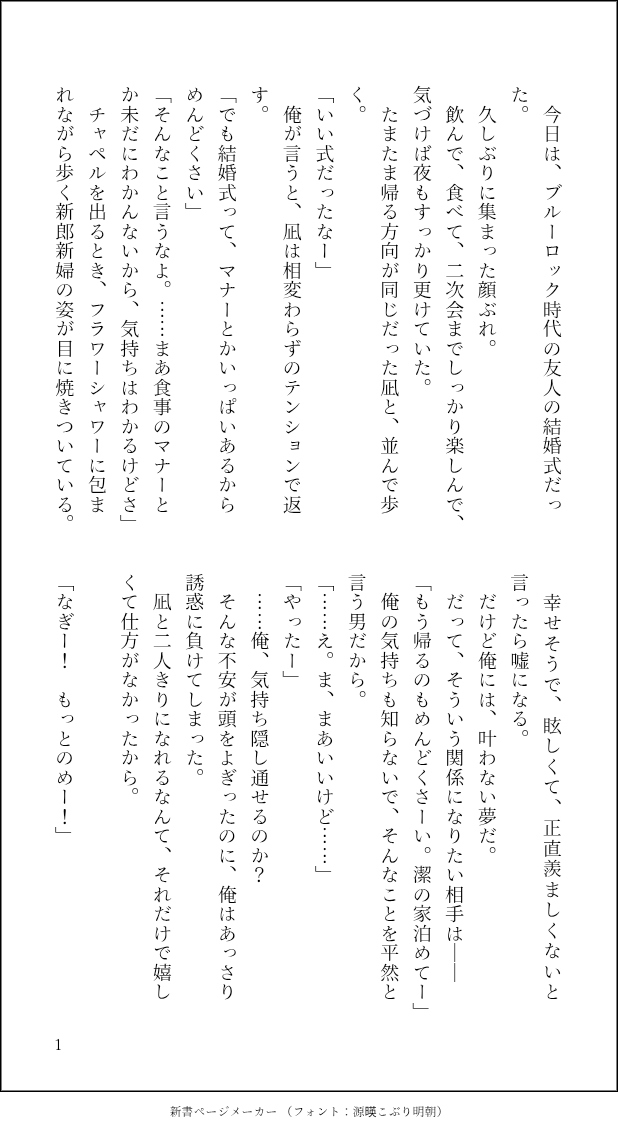 今日は、ブルーロック時代の友人の結婚式だっ
た。
久しぶりに集まった顔ぶれ。
飲んで、食べて、二次会までしっかり楽しんで、
気づけば夜もすっかり更けていた。
たまたま帰る方向が同じだった凪と、並んで歩
く。
「いい式だったなー」
俺が言うと、凪は相変わらずのテンションで返
す。
「でも結婚式って、マナーとかいっぱいあるから
めんどくさい」
「そんなこと言うなよ。……まあ食事のマナーと
か未だにわかんないから、気持ちはわかるけどさ」
チャペルを出るとき、フラワーシャワーに包ま
れながら歩く新郎新婦の姿が目に焼きついている。
幸せそうで、眩しくて、正直羨ましくないと
言ったら嘘になる。
だけど俺には、叶わない夢だ。
だって、そういう関係になりたい相手は――
「もう帰るのもめんどくさーい。潔の家泊めてー」
俺の気持ちも知らないで、そんなことを平然と
言う男だから。
「……え。ま、まあいいけど……」
「やったー」
……俺、気持ち隠し通せるのか？
そんな不安が頭をよぎったのに、俺はあっさり
誘惑に負けてしまった。
凪と二人きりになれるなんて、それだけで嬉し
くて仕方がなかったから。
「なぎー！　もっとのめー！」
1
新書ページメーカー（フォント：源暎こぶり明朝）